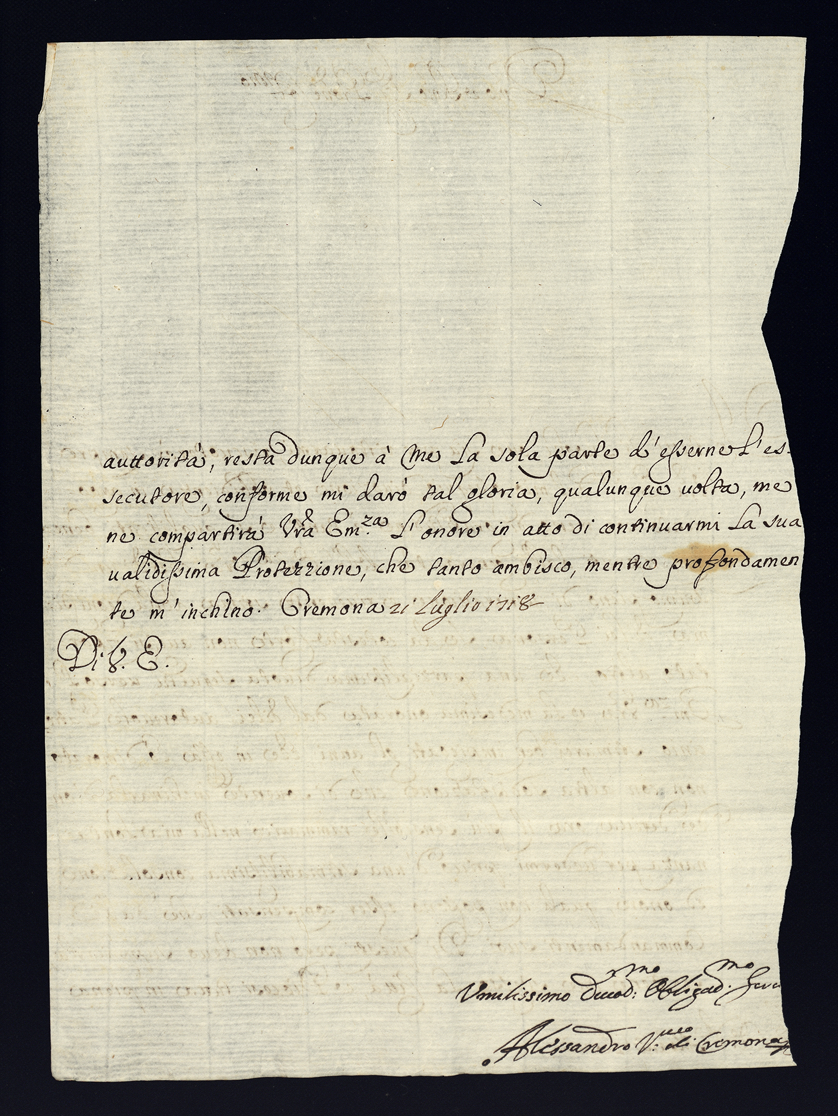 auttorità, resta dunque à me La sola parte d'esserne L'es-
secutore, conforme mi darò tal gloria, qualunque volta, me
ne compartirà Vrã Em.za L'onore in atto di continuarmi La sua
validissima Protezzione, che tanto ambisco, mentre profondamen
te m'inchino. Cremona 21 Luglio 1718
Di V. E.
Umilissimo Devod:mo Obligad:mo Serv
Alessandro V:vo di Cremona